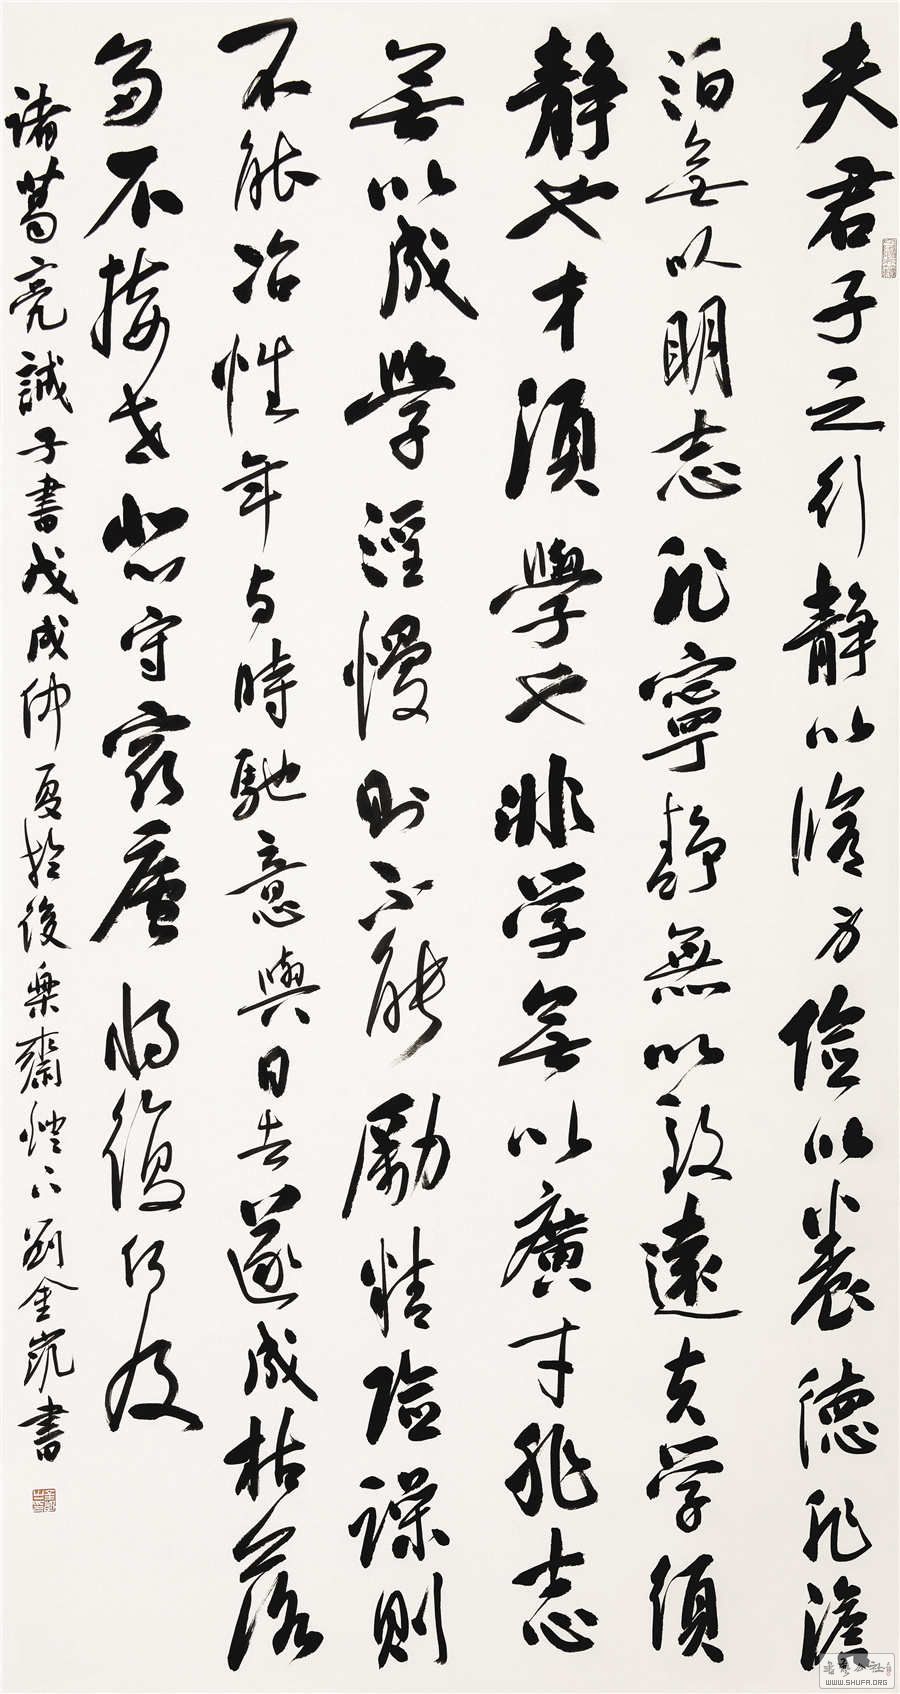 夫君子之行静以脩身儉以養德非澹
泊無以明志非寧靜無以致遠夫学須
静也才須學也非学無以廣才非志
無以成學淫慢則不能勵精險躁則
不能冶性年与時馳意與日去遂成枯落
多不接世悲守窮廬將復何及
諸葛亮誡子書戊戌仲夏於後樂齋燈下劉金凱書
WWW.SHUFA.ORG